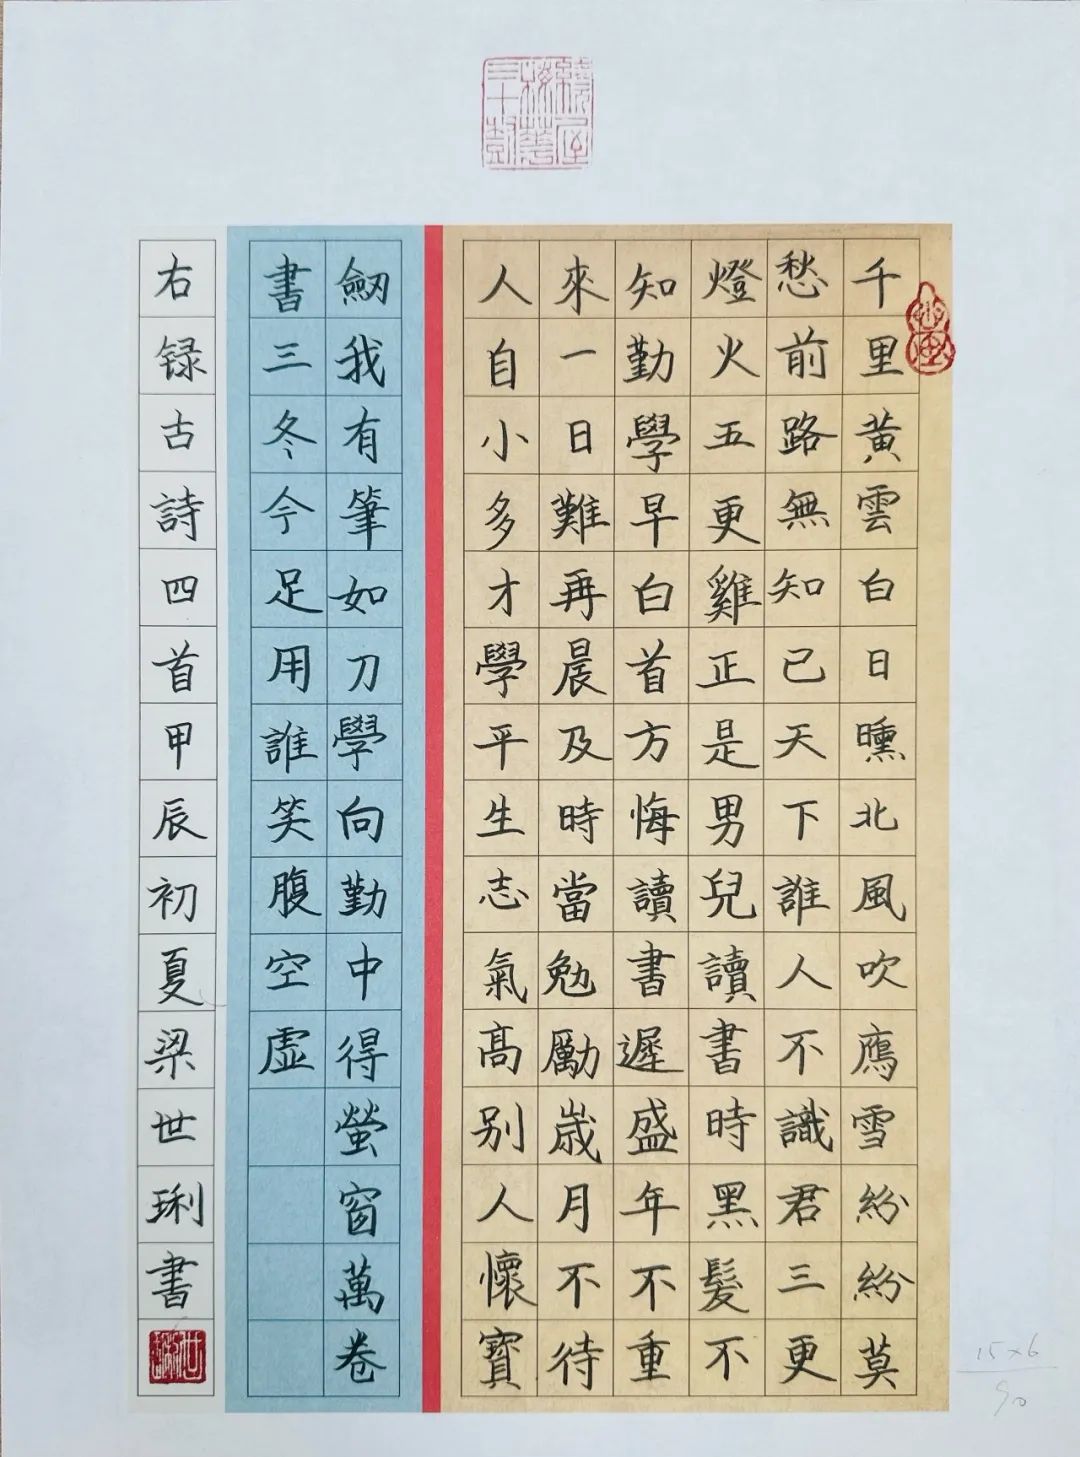 千里黃雲白日曛北風吹鴈雪紛紛莫
愁前路無知己天下誰人不識君三更
燈火五更雞正是男兒讀書時黑髮不
知勤學早白首方悔讀書遲盛年不重
來一日難再晨及時當勉勵歲月不待
人自小多才學平生志氣高别人懷寶
劒我有筆如刀學向勤中得螢窗萬卷
書三冬今足用誰笑腹空虛
右録古詩四首甲辰初夏梁世琍書
15×6
90